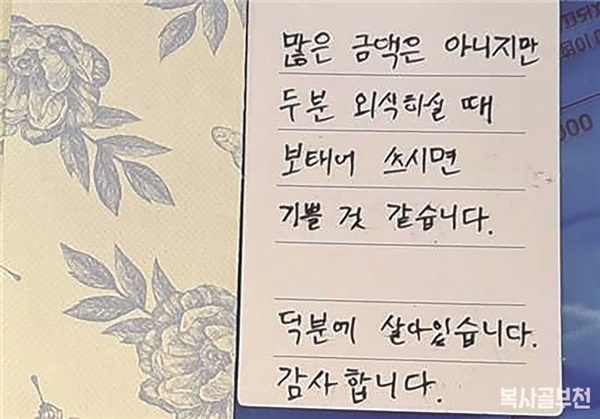 많은 금액은 아니지만
두분 외식하실 때
보태어 쓰시면
기쁠 것 같습니다.
덕분에 살아있습니다.
감사합니다.
복사골부천